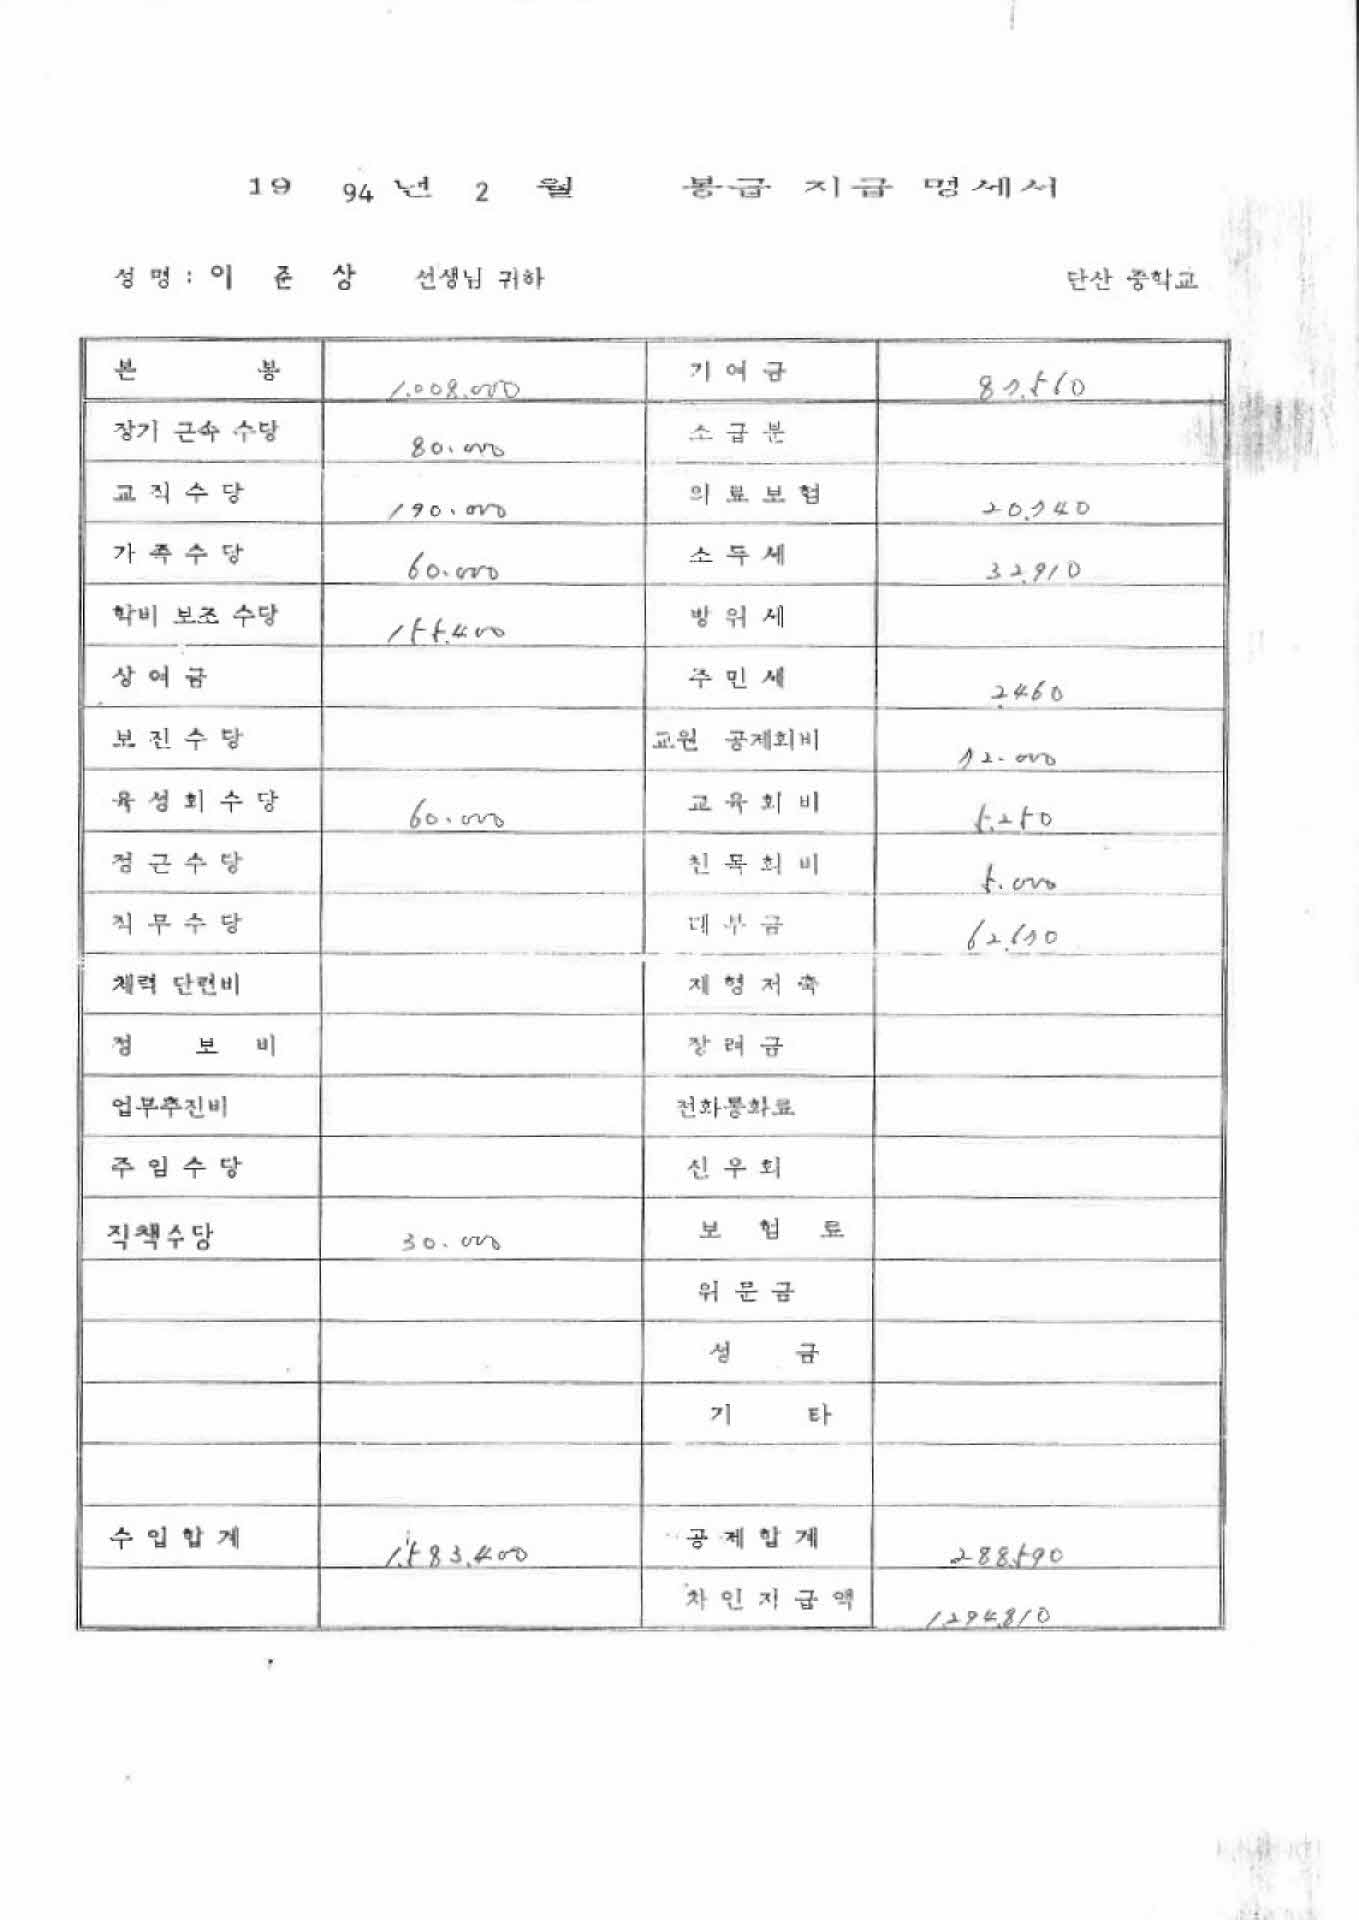 19 94 년 2 월 봉급 지급 명세서
성명 : 이 준 상 선생님 귀하 단산 중학교
본 봉 1.008.000 기여금 87.560
장기 근속 수당 80.000 소급분
교직수당 190.000 의료보험 20.740
가족수당 60.000 소득세 32.910
학비 보조 수당 155.400 방위세
상여금 주민세 2.460
보건수당 교원 공제회비 72.000
육성회수당 60.000 교육회비 5.250
정근수당 친목회비 5.000
직무수당 대부금 62.670
체력 단련비 재형저축
정보비 장려금
업무추진비 전화통화료
주임수당 신우회
직책수당 30.000 보험료
위문금
성금
기타
수입합계 1.583.400 공제합계 288.590
차인지급액 1.294.810